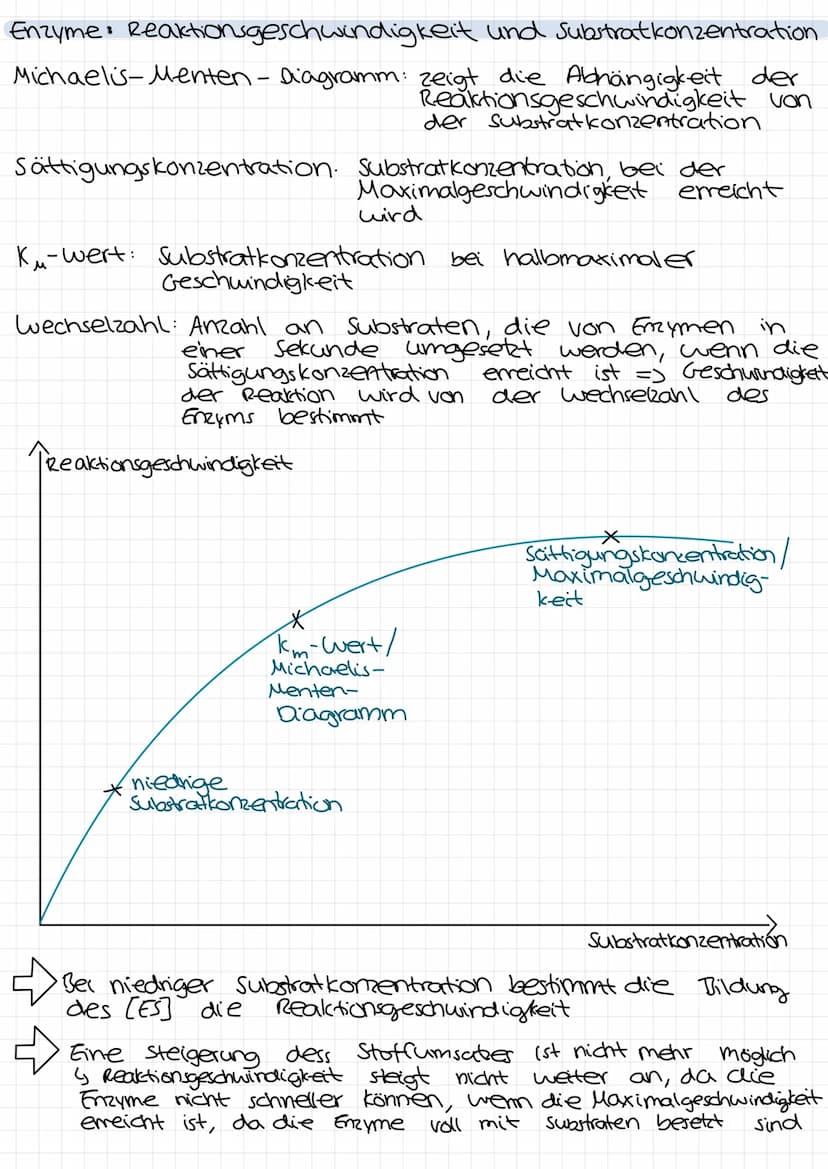 Enzyme: Reaktionsgeschwindigkeit und Substratkonzentration
Michaelis-Menten-Diagramm: zeigt die Abhängigkeit der
Reaktionsgeschwindigkeit von
der Substratkonzentration
Sättigungskonzentration: Substratkonzentration, bei der
Maximalgeschwindigkeit erreicht
wird
KM-Wert: Substratkonzentration bei halbmaximaler
Geschwindigkeit
Wechselzahl: Anzahl an Substraten, die von Enzymen in
einer Sekunde umgesetzt werden, wenn die
Sättigungskonzentration erreicht ist => Geschwindigkeit
der Reaktion wird von der Wechselzahl des
Enzyms bestimmt
Reaktionsgeschwindigkeit
Sättigungskonzentration/
Maximalgeschwindig-
keit
Km-Wert/
Michaelis-
Menten-
Diagramm
niedrige
Substratkonzentration
Substratkonzentration
Bei niedriger Substratkonzentration bestimmt die Bildung
des [ES] die Reaktionsgeschwindigkeit
Eine Steigerung dess Stoffumsatzes ist nicht mehr möglich
↳ Reaktionsgeschwindigkeit steigt nicht weiter an, da die
Enzyme nicht schneller können, wenn die Maximalgeschwindigkeit
erreicht ist, da die Enzyme voll mit Substraten besetzt sind